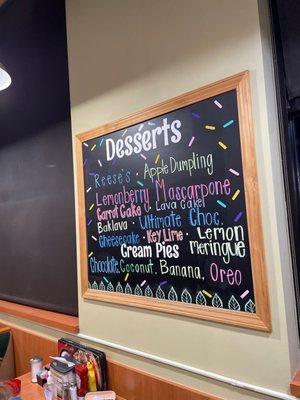 Desserts
Reese's . Apple Dumpling
Lemonberry Mascarpone
Carrot Cake . Lava Cake
Baklava . Ultimate Choc.
Cheesecake . Key Lime . Lemon Meringue
Cream Pies
Chocolate, Coconut, Banana, Oreo